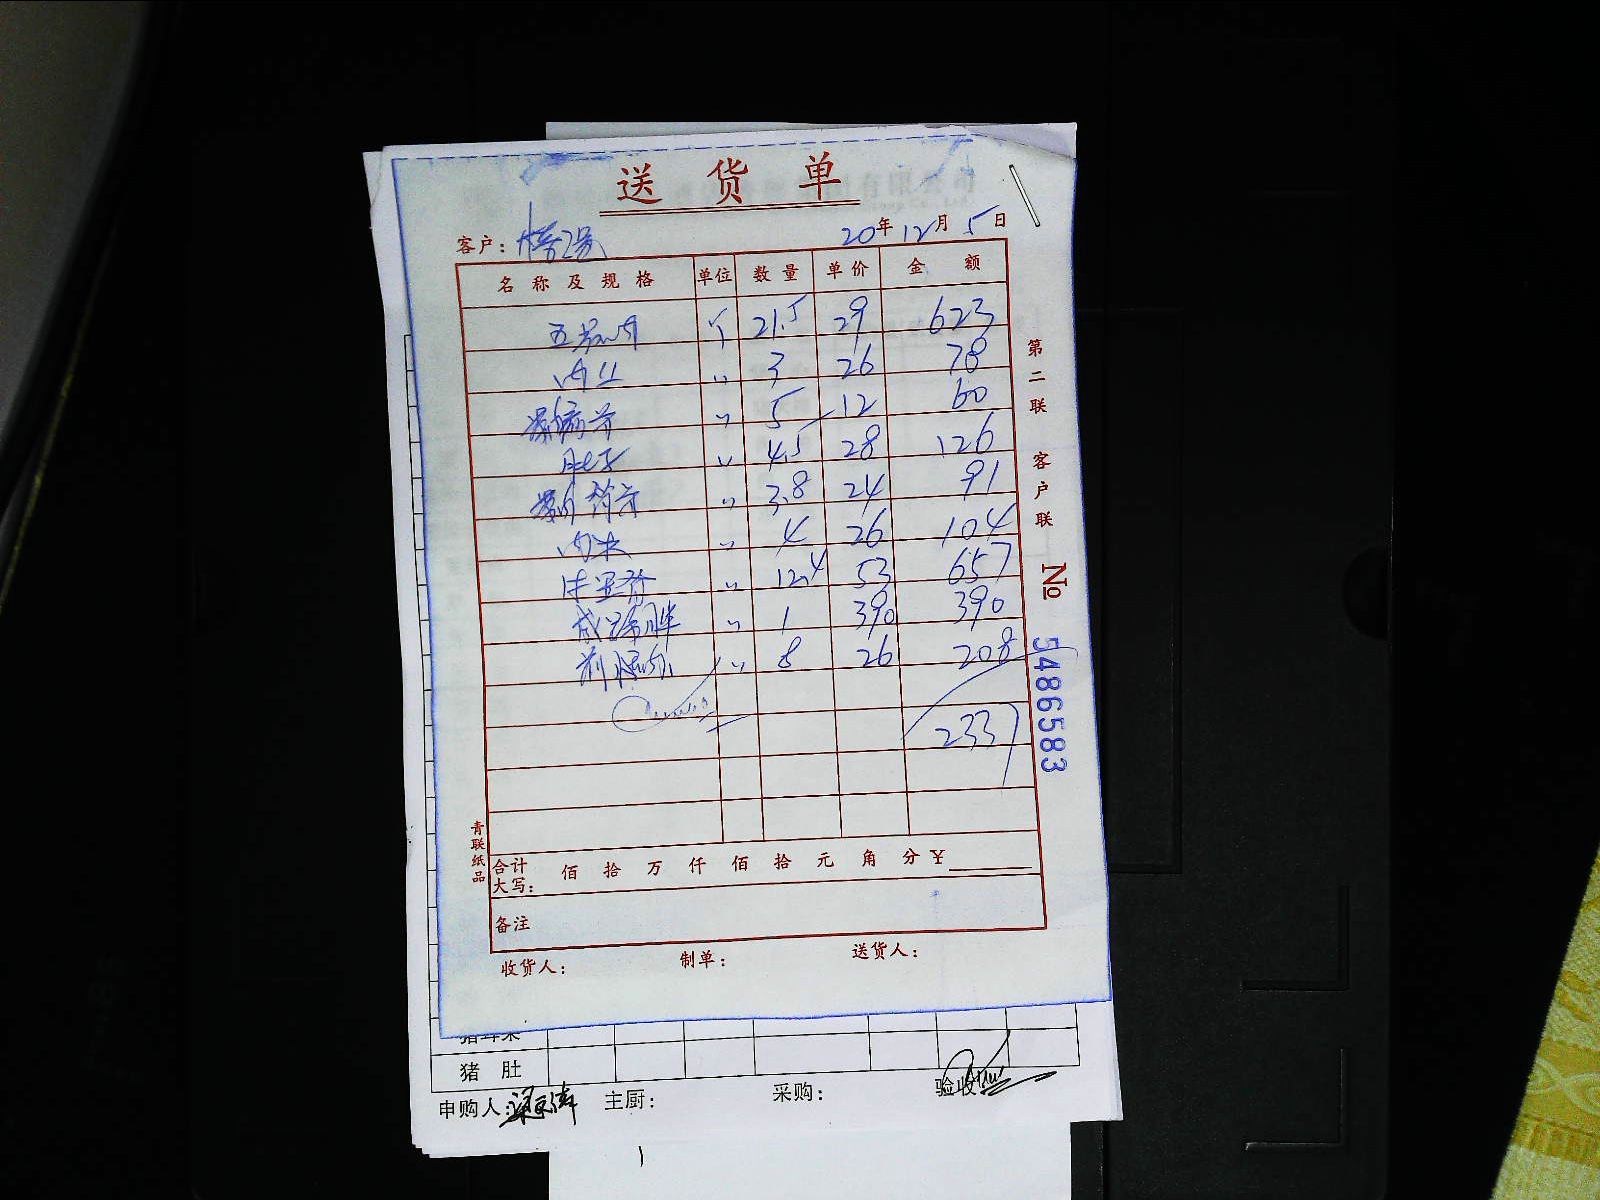 送货单
客户：
20年12月5日
名称及规格 单位 数量 单价 金额
五号肉 斤 21.5 29 623
肉丝 〃 3 26 78
〃 5 12 60
肚子 〃 4.5 28 126
〃 3.8 24 91
肉末 〃 4 26 104
〃 12.4 53 657
〃 1 390 390
前腿肉 〃 8 26 208
2337
合计大写： 佰 拾 万 仟 佰 拾 元 角 分 ¥
备注
收货人： 制单： 送货人：
青联纸品
第二联 客户联
No 5486583
猪肚
申购人： 主厨： 采购： 验收